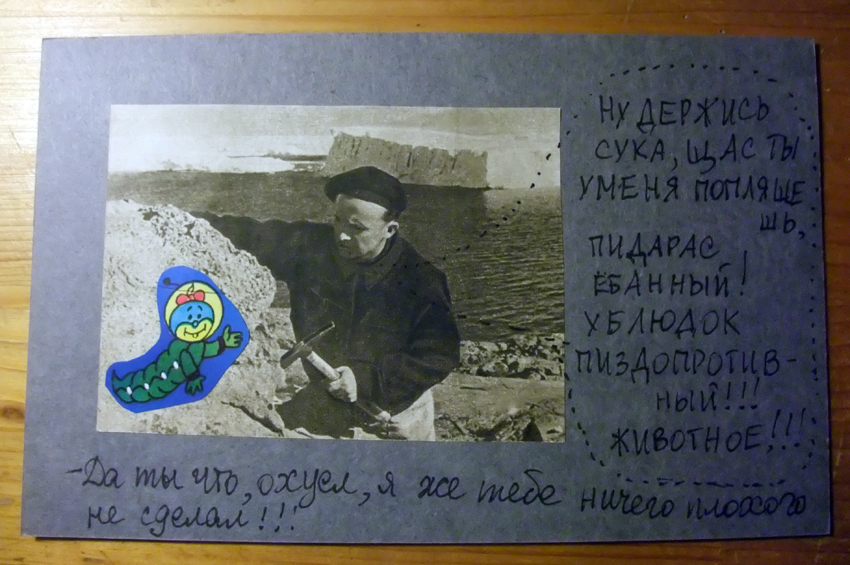 НУ ДЕРЖИСЬ
СУКА, ЩАС ТЫ
У МЕНЯ ПОПЛЯШЕ
ШЬ,
ПИДАРАС
ЁБАННЫЙ!
УБЛЮДОК
ПИЗДОПРОТИВ-
НЫЙ!!!
ЖИВОТНОЕ!!!
-Да ты что, охуел, я же тебе ничего плохого
не сделал!!!